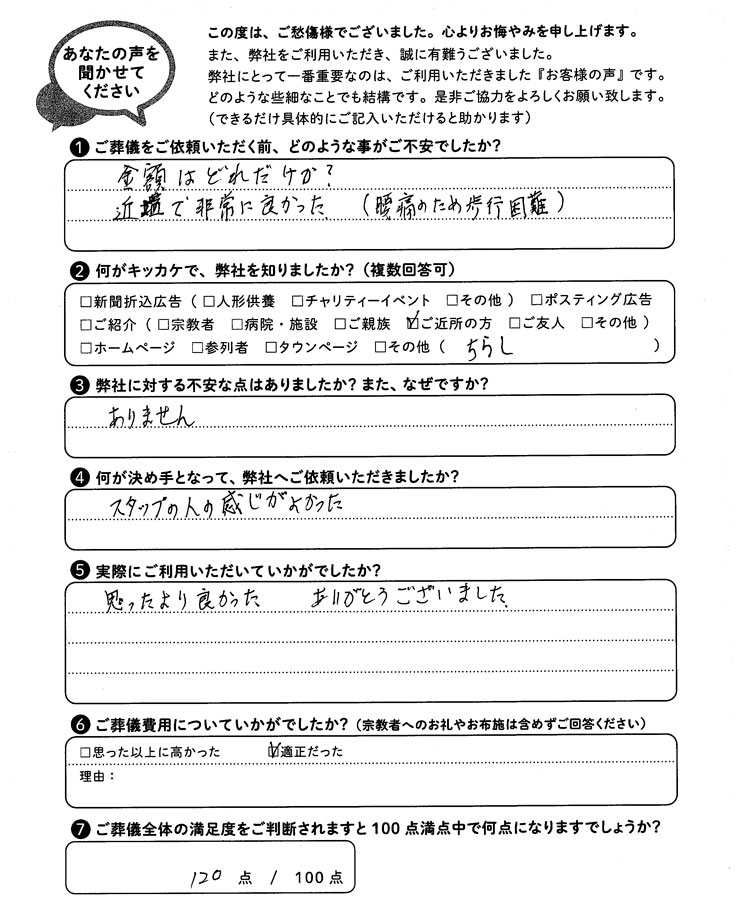 あなたの声を
聞かせて
ください
この度は、ご愁傷様でございました。心よりお悔やみを申し上げます。
また、弊社をご利用いただき、誠に有難うございました。
弊社にとって一番重要なのは、ご利用いただきました『お客様の声』です。
どのような些細なことでも結構です。是非ご協力をよろしくお願い致します。
（できるだけ具体的にご記入いただけると助かります）
❶ ご葬儀をご依頼いただく前、どのような事がご不安でしたか？
金額はどれだけか？
近場で非常に良かった （腰痛のため歩行困難）
❷ 何がキッカケで、弊社を知りましたか？（複数回答可）
□新聞折込広告（□人形供養 □チャリティーイベント □その他） □ポスティング広告
□ご紹介（□宗教者 □病院・施設 □ご親族 ☑ご近所の方 □ご友人 □その他）
□ホームページ □参列者 □タウンページ □その他（ ちらし ）
❸ 弊社に対する不安な点はありましたか？また、なぜですか？
ありません
❹ 何が決め手となって、弊社へご依頼いただきましたか？
スタッフの人の感じがよかった
❺ 実際にご利用いただいていかがでしたか？
思ったより良かった ありがとうございました
❻ ご葬儀費用についていかがでしたか？（宗教者へのお礼やお布施は含めずご回答ください）
□思った以上に高かった ☑適正だった
理由：
❼ ご葬儀全体の満足度をご判断されますと100点満点中で何点になりますでしょうか？
120 点 / 100点